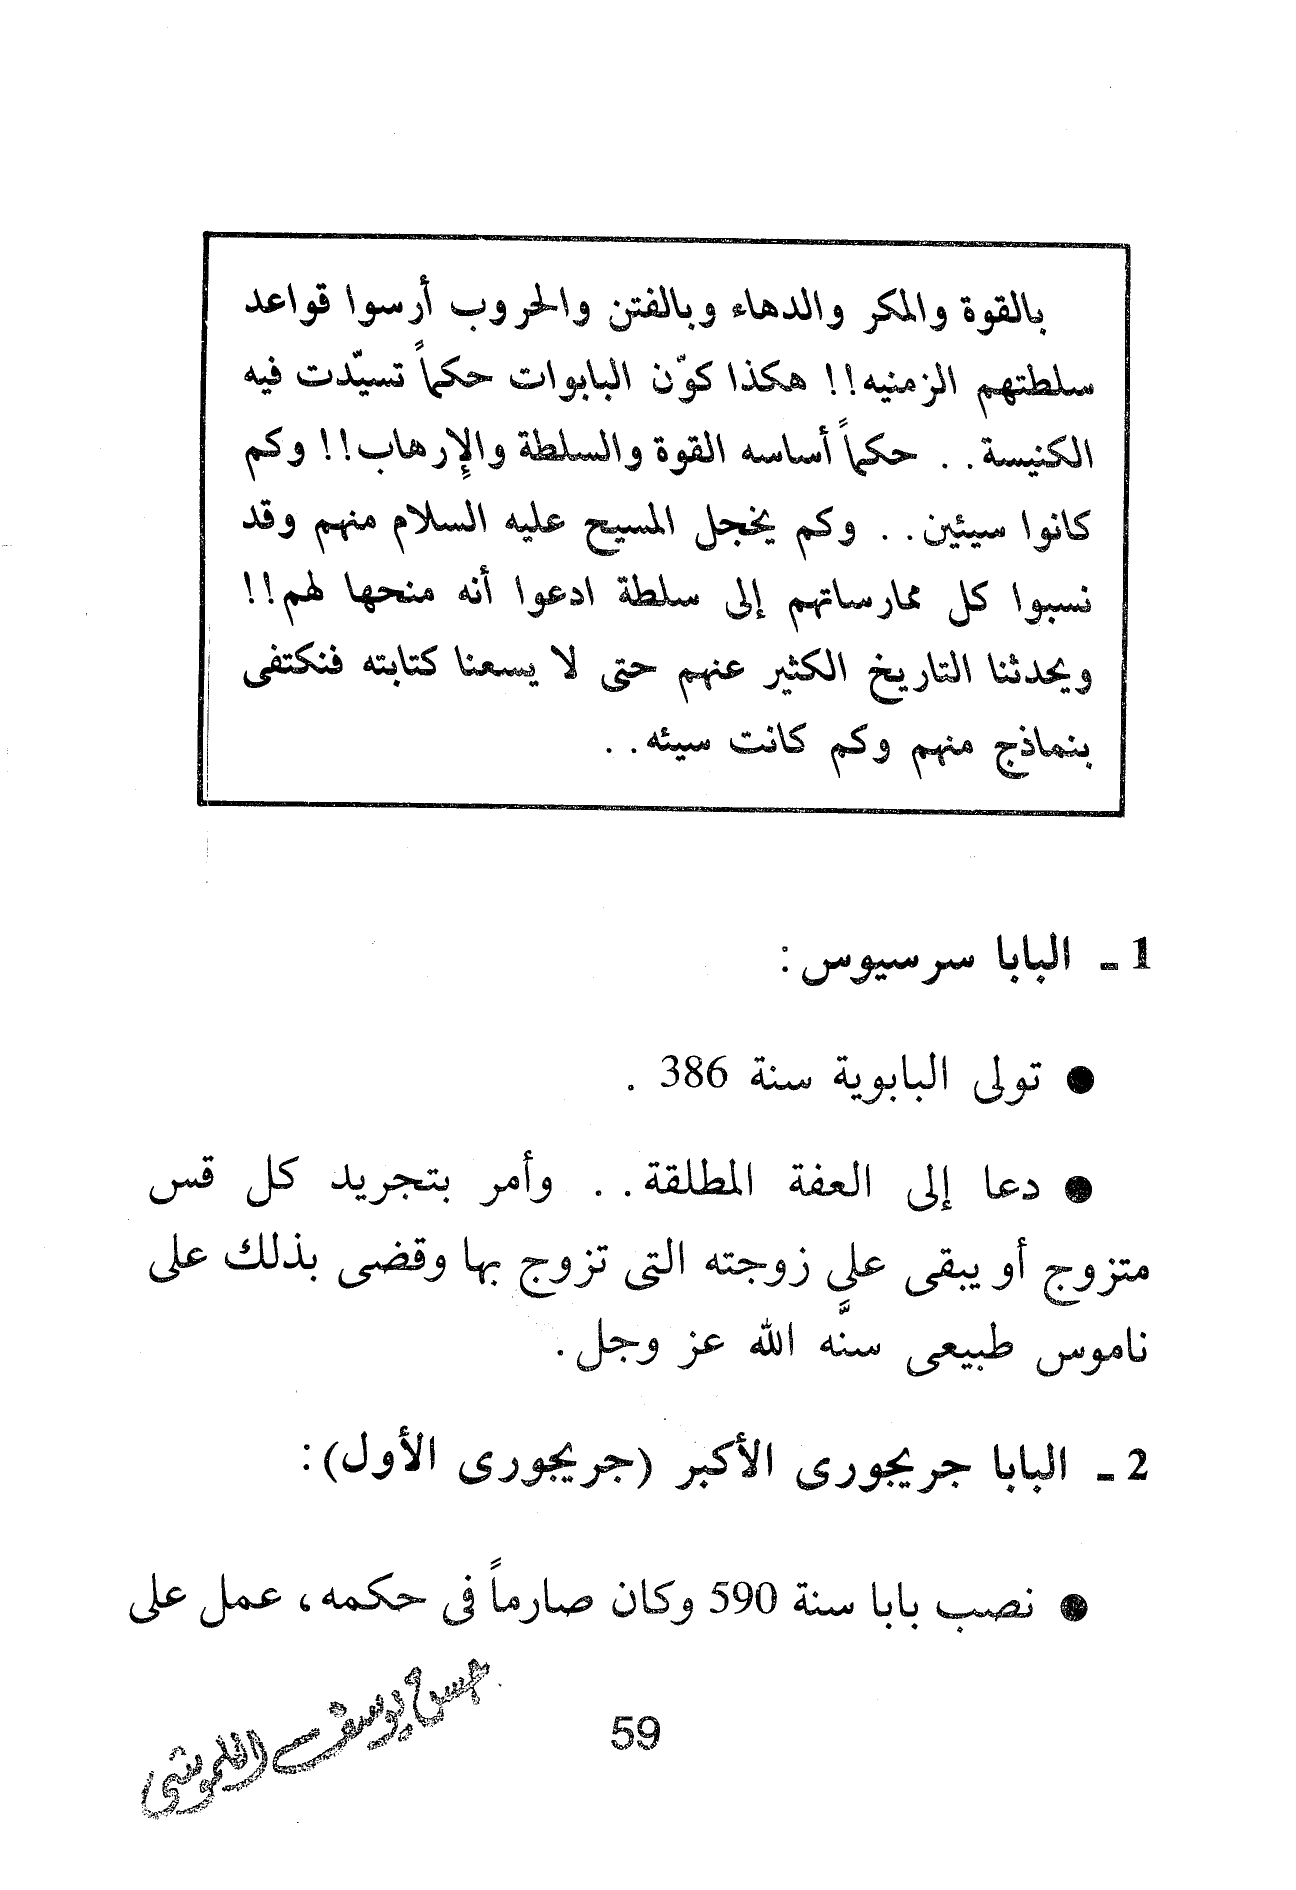 بالقوة والمكر والدهاء وبالفتن والحروب أرسوا قواعد
سلطتهم الزمنيه!! هكذا كوّن البابوات حكماً تسيّدت فيه
الكنيسة. . حكماً أساسه القوة والسلطة والإرهاب!! وكم
كانوا سيئين. . وكم يخجل المسيح عليه السلام منهم وقد
نسبوا كل ممارساتهم إلى سلطة ادعوا أنه منحها لهم!!
ويحدثنا التاريخ الكثير عنهم حتى لا يسعنا كتابته فنكتفى
بنماذج منهم وكم كانت سيئه. .
1 ـ البابا سرسيوس :
● تولى البابوية سنة 386 .
● دعا إلى العفة المطلقة. . وأمر بتجريد كل قس
متزوج أو يبقى على زوجته التى تزوج بها وقضى بذلك على
ناموس طبيعى سنَّه الله عز وجل.
2 ـ البابا جريجورى الأكبر (جريجورى الأول):
● نصب بابا سنة 590 وكان صارماً فى حكمه، عمل على
59
حسن يوسف